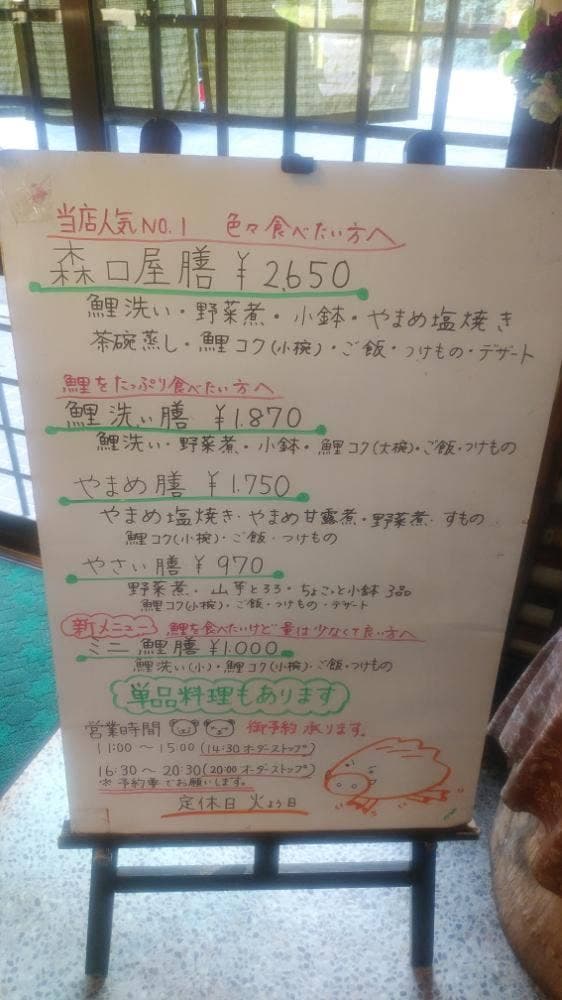 当店人気NO.1 色々食べたい方へ
森口屋膳 ¥2,650
鯉洗い・野菜煮・小鉢・やまめ塩焼き
茶碗蒸し・鯉コク(小椀)・ご飯・つけもの・デザート
鯉をたっぷり食べたい方へ
鯉洗い膳 ¥1.870
鯉洗い・野菜煮・小鉢・鯉コク(大椀)・ご飯・つけもの
やまめ膳 ¥1.750
やまめ塩焼き・やまめ甘露煮・野菜煮・すもの
鯉コク(小椀)・ご飯・つけもの
やさい膳 ¥970
野菜煮・山芋とろろ・ちょこっと小鉢3品
鯉コク(小椀)・ご飯・つけもの・デザート
新メニュー 鯉を食べたいけど量は少なくて良い方へ
ミニ鯉膳 ¥1.000
鯉洗い(小)・鯉コク(小椀)・ご飯・つけもの
単品料理もあります
営業時間 御予約承ります。
11:00〜15:00(14:30オーダーストップ)
16:30〜20:30(20:00オーダーストップ)
※予約車でお願いします。
定休日 火よう日